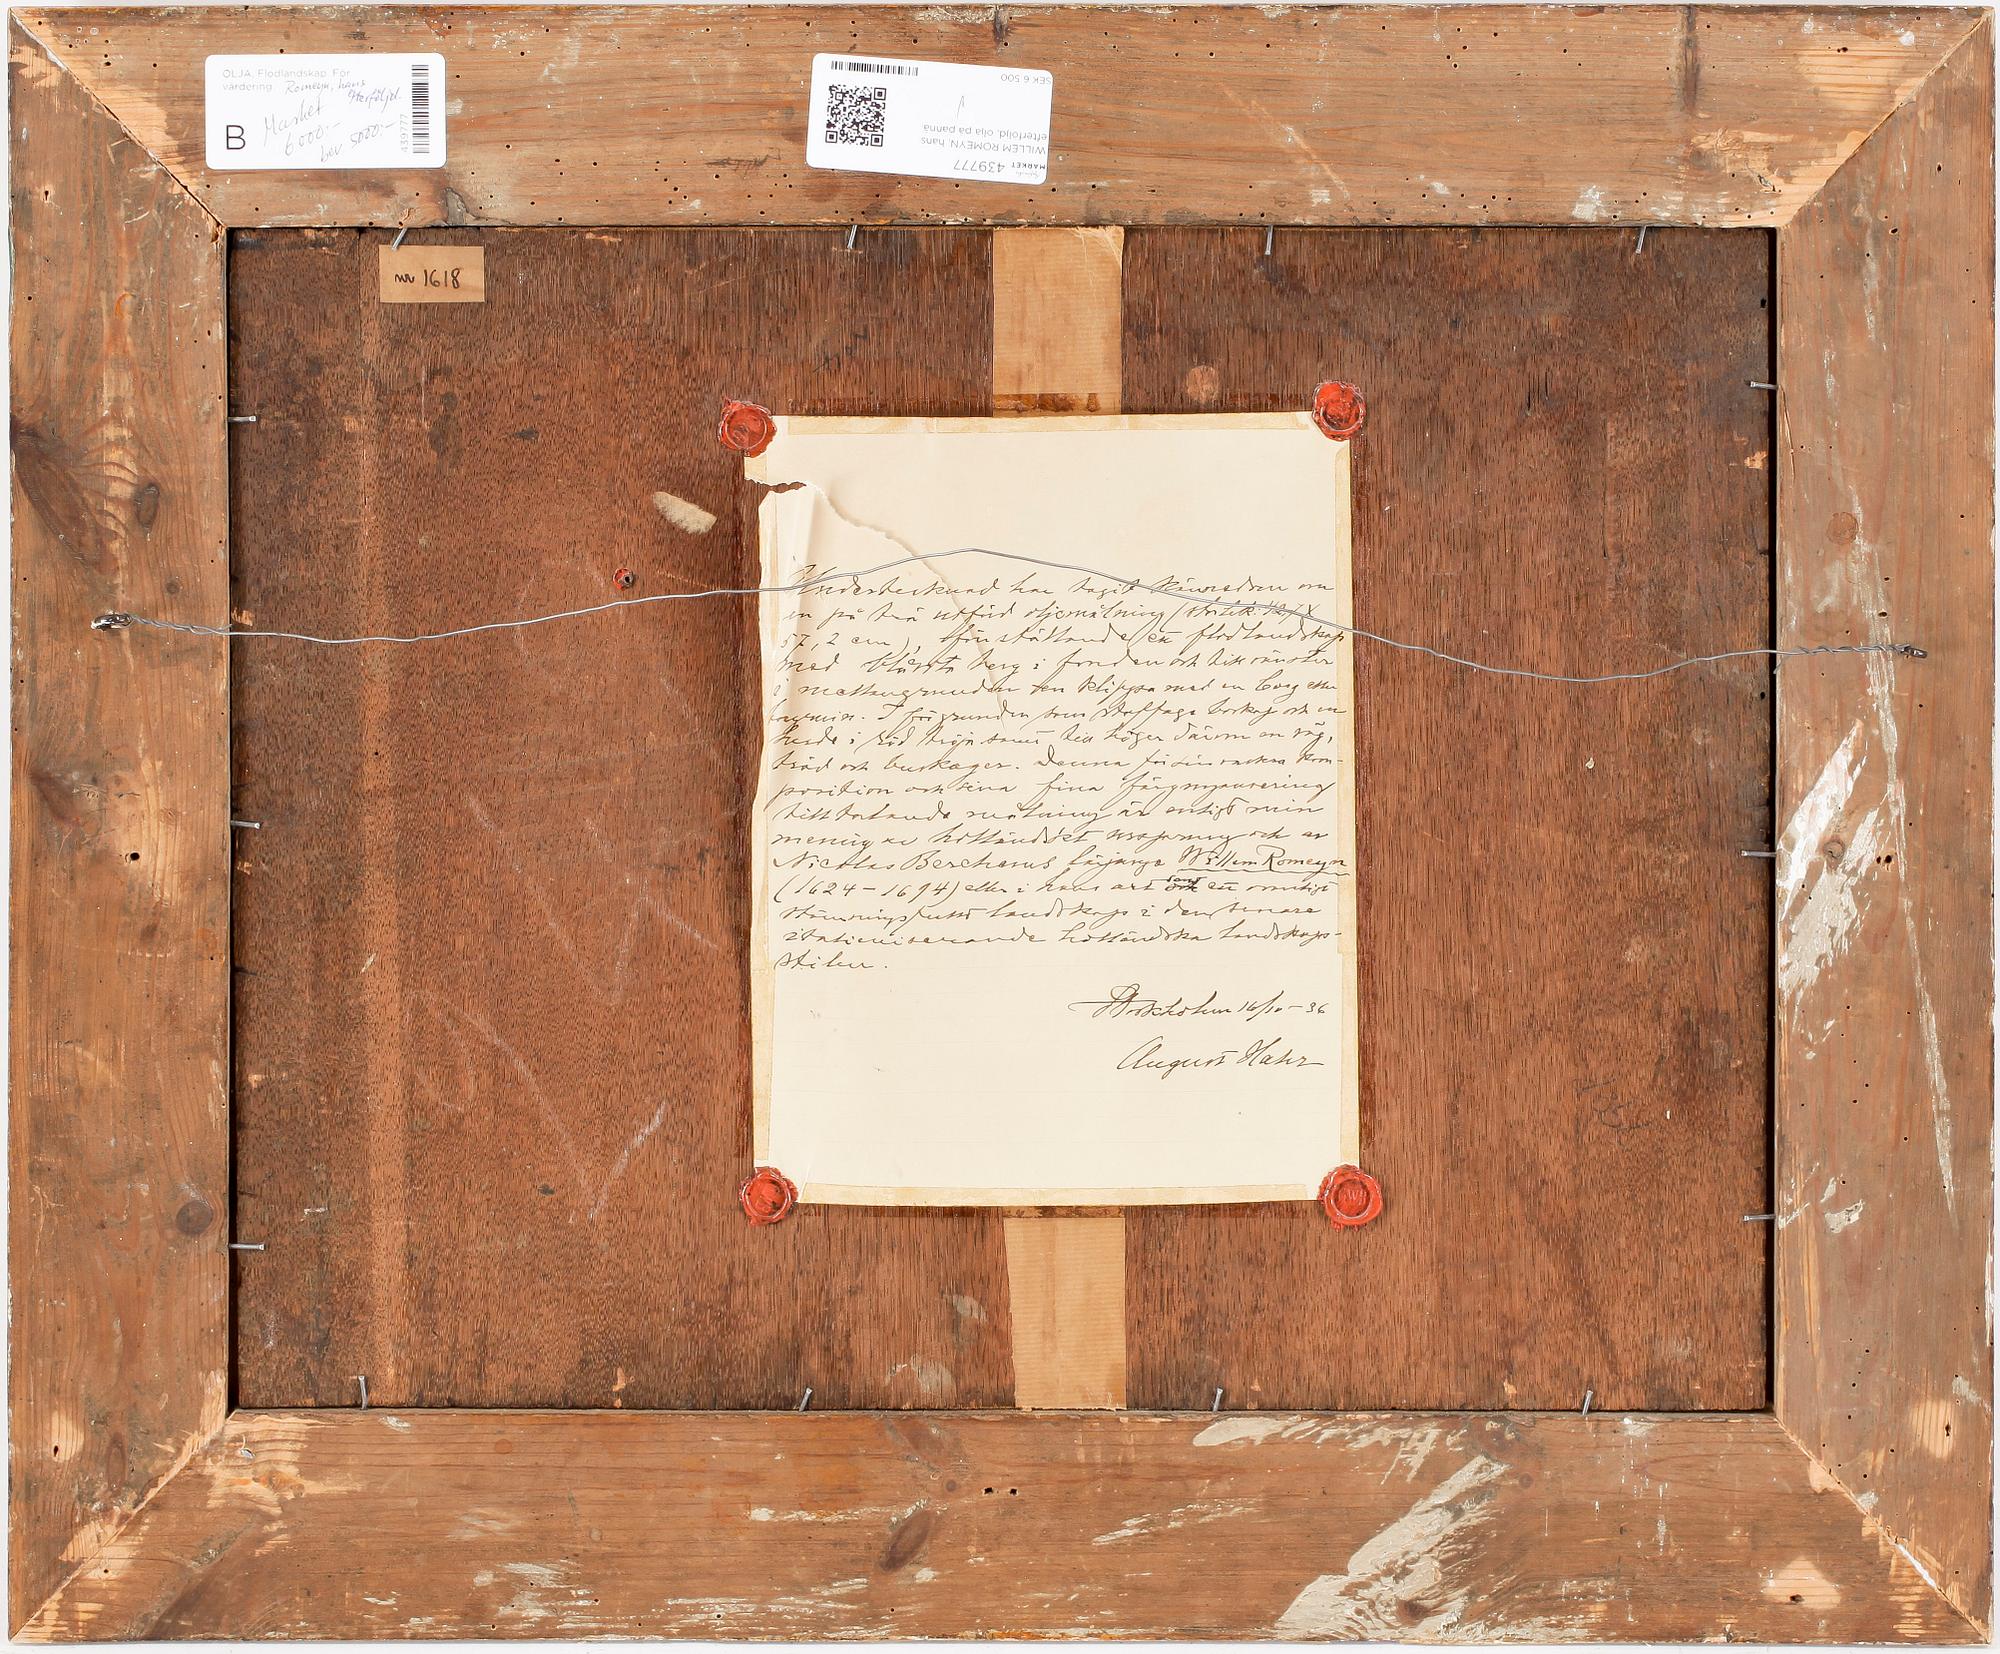 OLJA, Flodlandskap. För
värdering. Romeyn, hans
efterföljd.
B Market
6 000:-
bev 5000:-
439777
SEK 6 500
WILLEM ROMEYN, hans
efterföljd. olja på pannå
MARKET 439777
nr 1618
Undertecknad har tagit kännedom om
en på trä utförd oljemålning (storlek: 42,1 X
57,2 cm), föreställande ett flodlandskap
med blånande berg i fonden och till vänster
i mellangrunden en klippa med en borg eller
. I förgrunden som staffage boskap och en
herde i röd tröja samt till höger därom en väg,
träd och buskager. Denna för sin vackra kom-
position och sina fina färgnyansering
tilltalande målning är enligt min
mening av holländskt ursprung och av
Nicolas Berchems lärjunge Willem Romeyn
(1624-1694) eller i hans art samt ett ovanligt
stämningsfullt landskap i den senare
italieniserande holländska landskaps-
stilen.
Stockholm 16/10-36
August Hahr